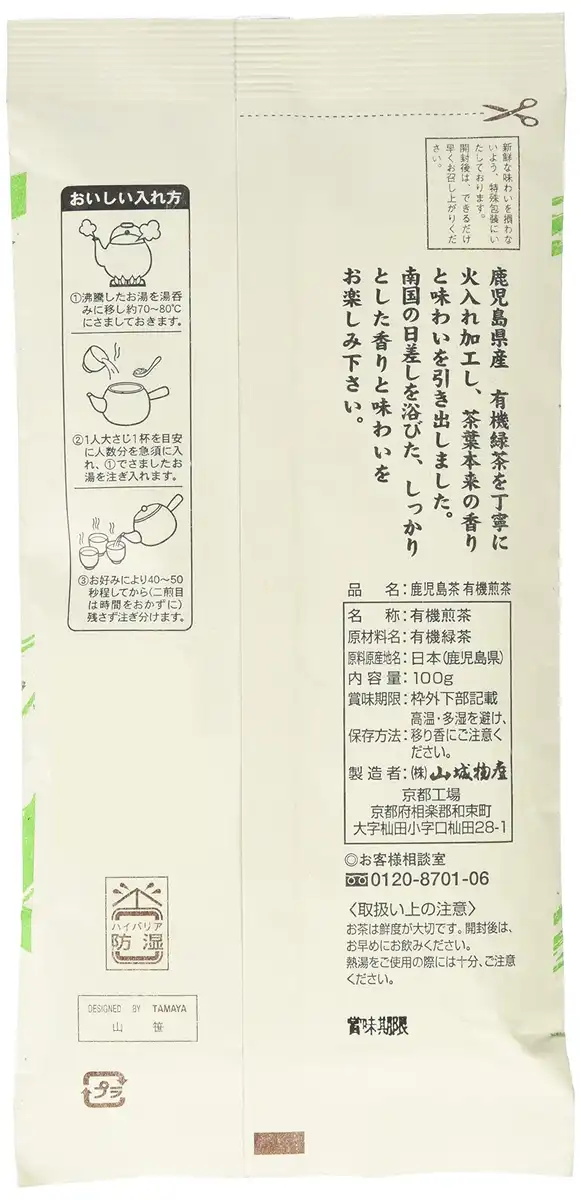 新鮮な味わいを損わな
いよう、特殊包装にい
たしております。
開封後は、できるだけ
早くお召し上がりくだ
さい。
おいしい入れ方
①沸騰したお湯を湯呑
みに移し約70～80℃
にさましておきます。
②1人大さじ1杯を目安
に人数分を急須に入
れ、①でさましたお
湯を注ぎ入れます。
③お好みにより40～50
秒程してから(二煎目
は時間をおかずに)
残さず注ぎ分けます。
鹿児島県産 有機緑茶を丁寧に
火入れ加工し、茶葉本来の香り
と味わいを引き出しました。
南国の日差しを浴びた、しっかり
とした香りと味わいを
お楽しみ下さい。
品 名:鹿児島茶 有機煎茶
名 称:有機煎茶
原材料名:有機緑茶
原料原産地名:日本(鹿児島県)
内容量:100g
賞味期限:枠外下部記載
保存方法:高温・多湿を避け、
移り香にご注意く
ださい。
製造者:(株)山城物産
京都工場
京都府相楽郡和束町
大字杣田小字口杣田28-1
◎お客様相談室
0120-8701-06
〈取扱い上の注意〉
お茶は鮮度が大切です。開封後は、
お早めにお飲みください。
熱湯をご使用の際には十分、ご注意
ください。
賞味期限
ハイバリア
防湿
DESIGNED BY TAMAYA
山 笹
プラ